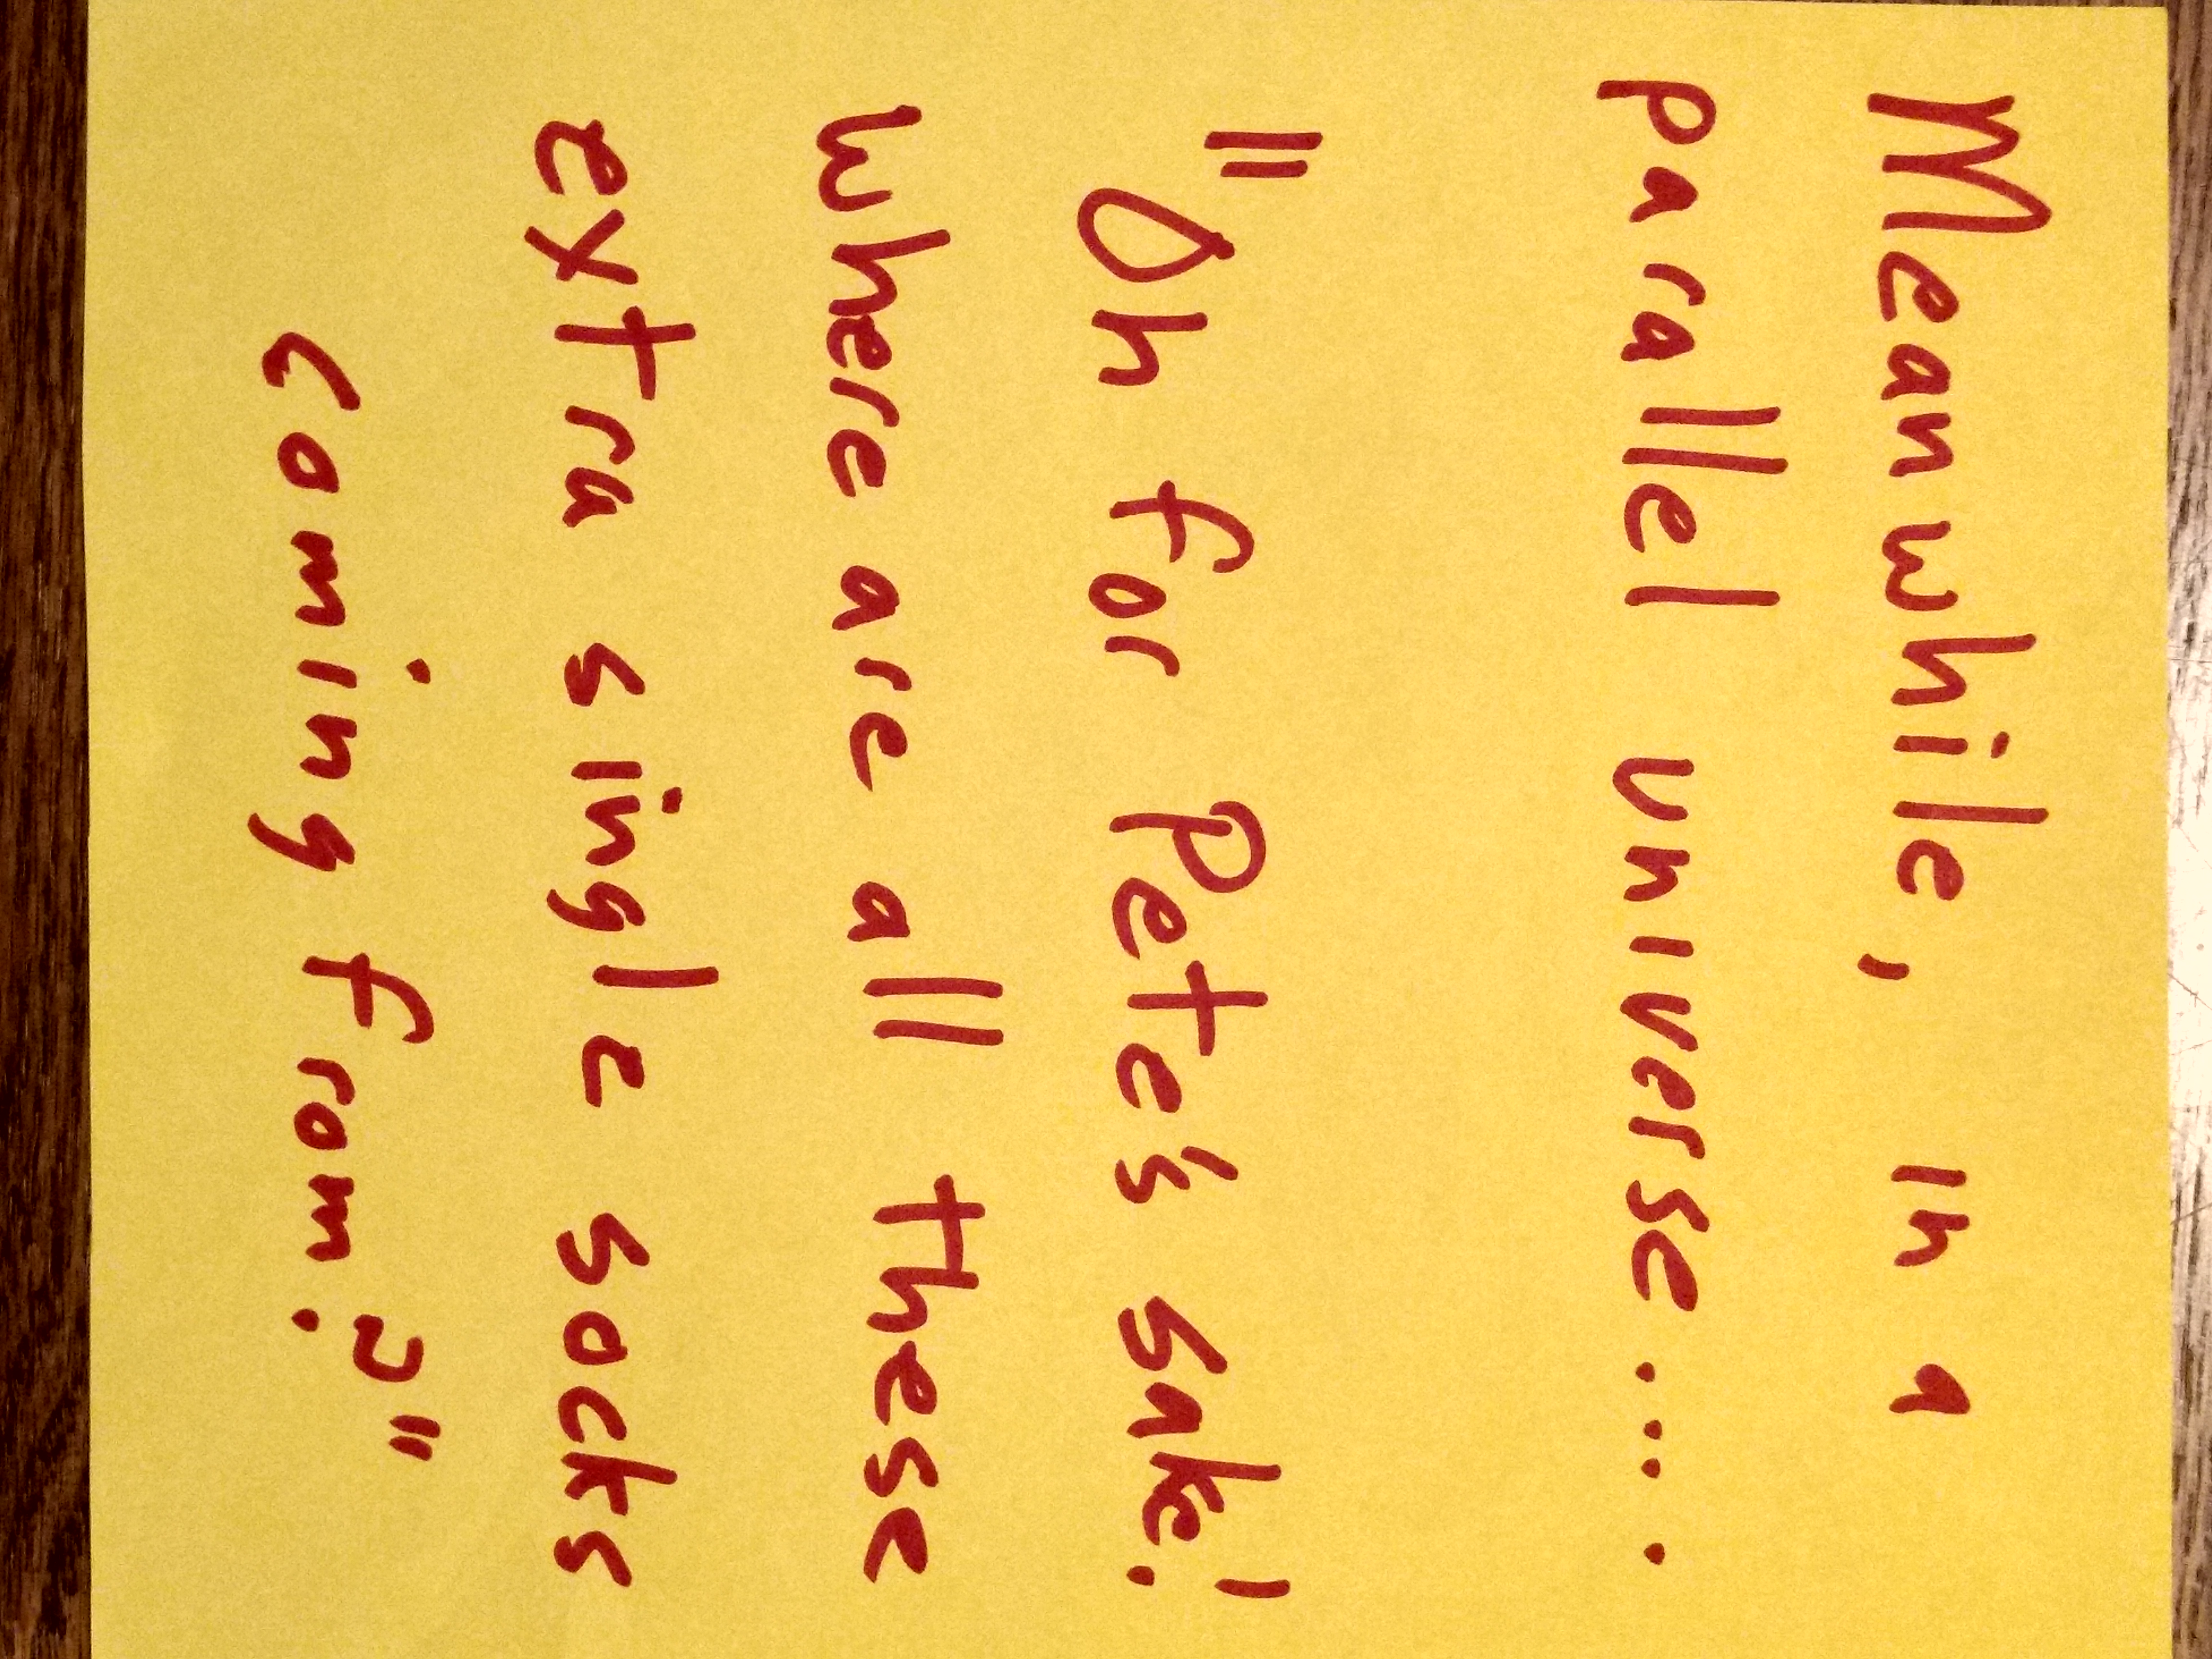 Meanwhile, in a
parallel universe....
"Oh for Pete's sake!
Where are all these
extra single socks
coming from?"